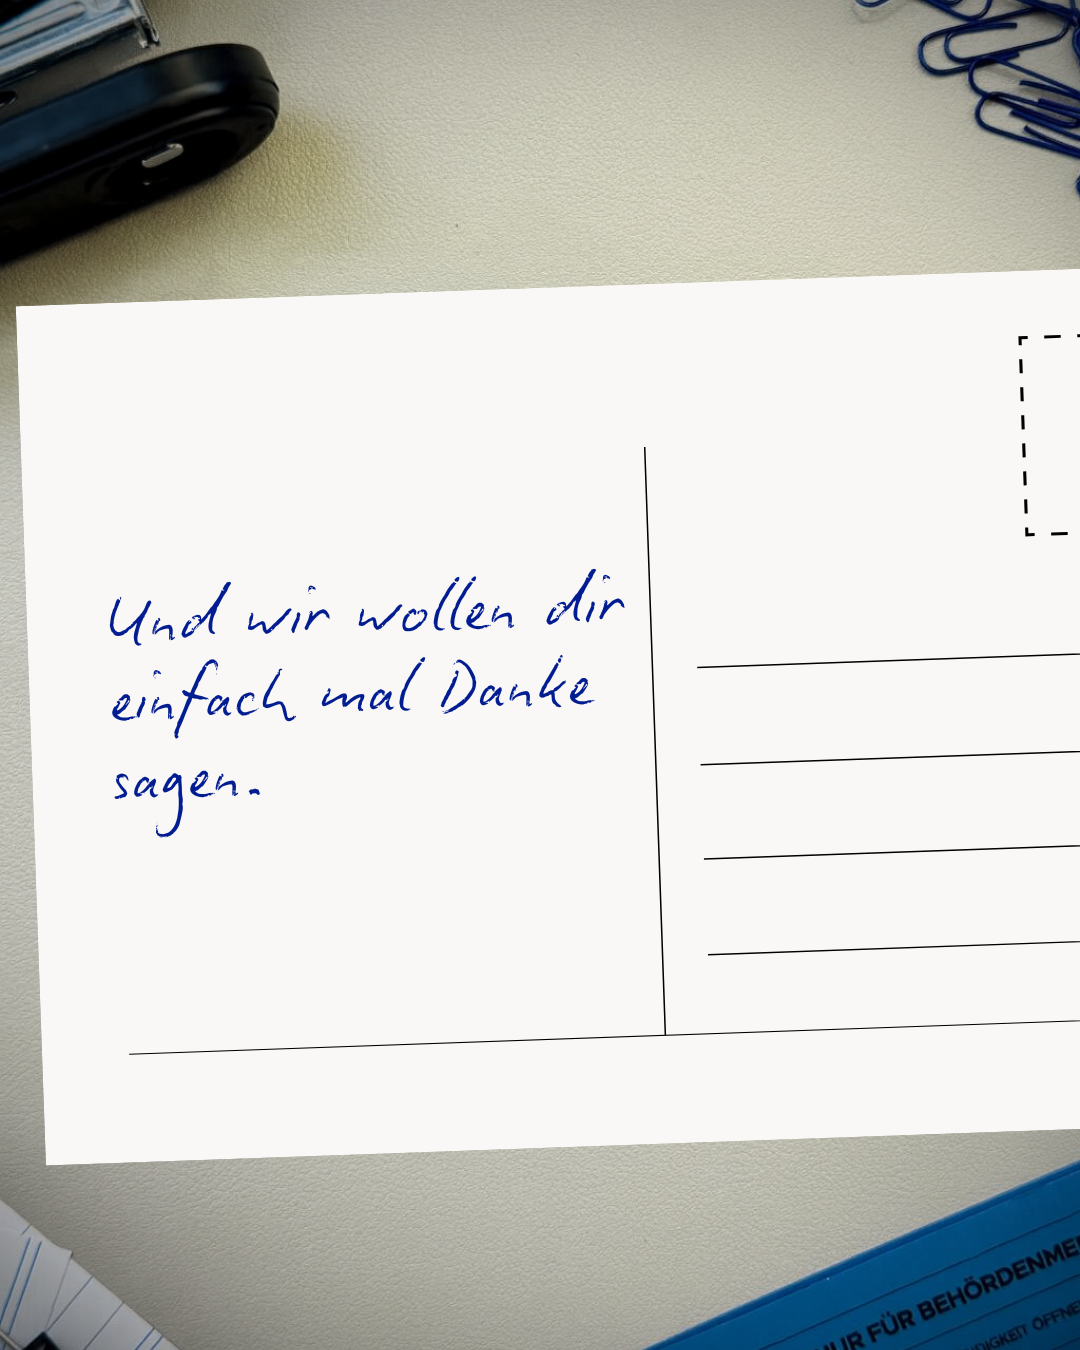 Und wir wollen dir
einfach mal Danke
sagen.
NUR FÜR BEHÖRDENME
ÖFFNE